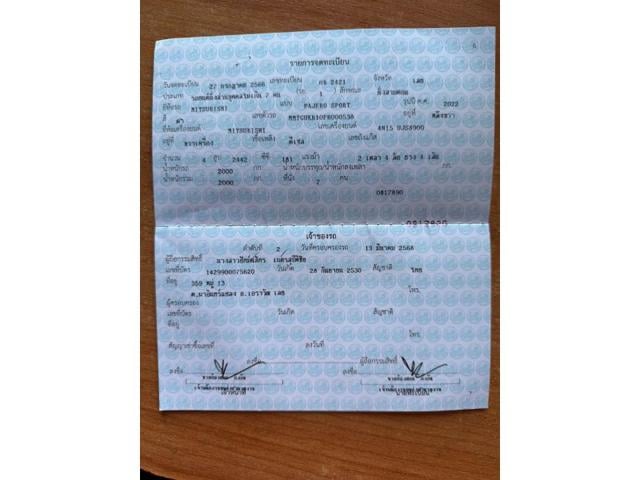 6
รายการจดทะเบียน
วันจดทะเบียน 27 กรกฎาคม 2566 เลขทะเบียน กจ 2421 จังหวัด เลย
ประเภท รถยนต์นั่งส่วนบุคคลไม่เกิน 7 คน (รย. 1 ) ลักษณะ
ยี่ห้อรถ MITSUBISHI แบบ PAJERO SPORT รุ่นปี ค.ศ. 2022
สี ดำ เลขตัวรถ อยู่ที่
ยี่ห้อเครื่องยนต์ MITSUBISHI เลขเครื่องยนต์
อยู่ที่ เชื้อเพลิง ดีเซล เลขถังแก๊ส
จำนวน 4 สูบ 2442 ซีซี 181 แรงม้า 2 เพลา 4 ล้อ ยาง 4 เส้น
น้ำหนักรถ 2000 กก. น้ำหนักบรรทุก/น้ำหนักลงเพลา กก.
น้ำหนักรวม 2000 กก. ที่นั่ง 7 คน
0817890
เจ้าของรถ
ลำดับที่ 2 วันที่ครอบครองรถ 13 มีนาคม 2568
ผู้ถือกรรมสิทธิ์ นางสาว
เลขที่บัตร 1429900075620 วันเกิด 28 กันยายน 2530 สัญชาติ ไทย
ที่อยู่ 359 หมู่ 13 โทร.
ต.นาอินทร์แปลง อ.เอราวัณ เลย
ผู้ครอบครอง
เลขที่บัตร วันเกิด สัญชาติ
ที่อยู่
โทร.
สัญญาเช่าซื้อเลขที่ ลงวันที่
ลงชื่อ ผู้ถือกรรมสิทธิ์
ลงชื่อ ลงชื่อ
เจ้าหน้าที่ นายทะเบียน